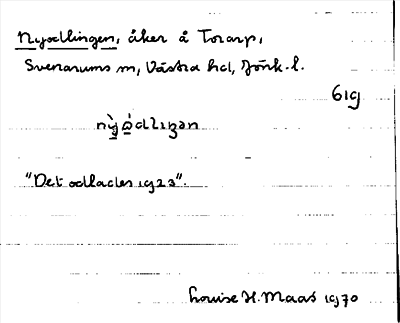 Nyodlingen, åker å Torarp,
Svenarums sn, Västra hd, Jönk. l.
619
nỳo̊dlıŋən
"Det odlades 1923".
Louise H. Maas 1970